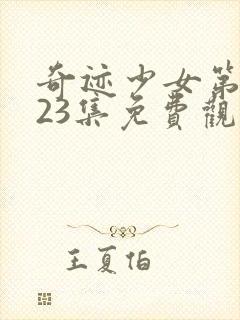 奇迹少女第
23集免費觀
王夏伯